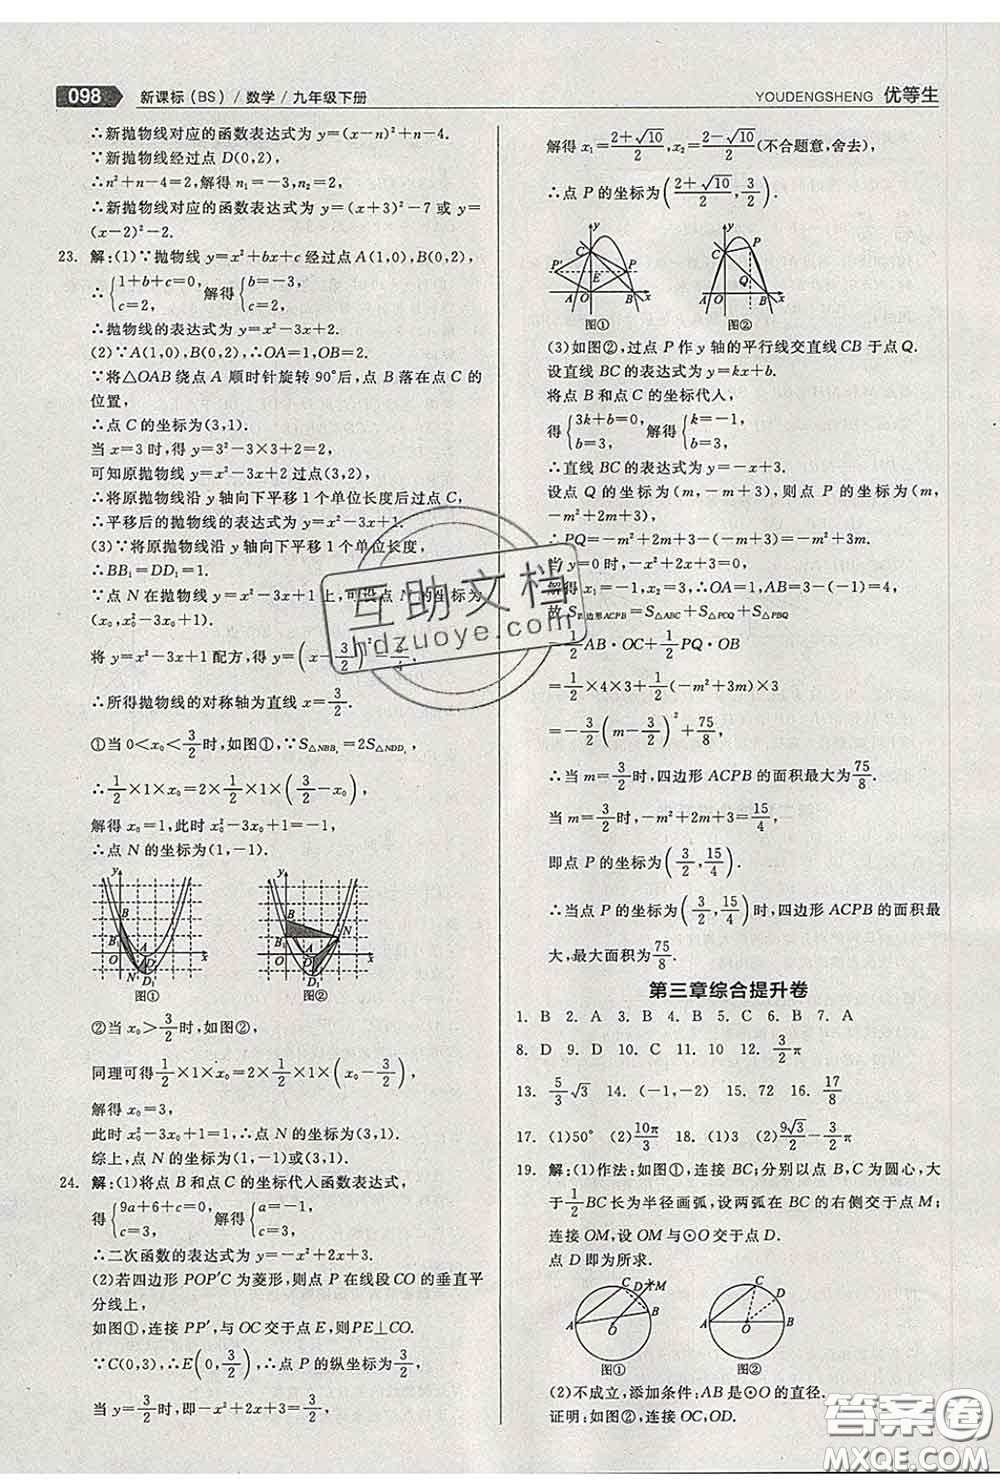 098 新课标(BS)/数学/九年级下册
YOUDENGSHENG 优等生
∴新抛物线对应的函数表达式为 y=(x-n)²+n-4.
∵新抛物线经过点 D(0,2),
∴n²+n-4=2,解得 n₁=-3,n₂=2,
∴新抛物线对应的函数表达式为 y=(x+3)²-7 或 y=
(x-2)²-2.
23. 解:(1)∵抛物线 y=x²+bx+c 经过点 A(1,0),B(0,2),
∴{1+b+c=0, c=2, 解得{b=-3, c=2,
∴抛物线的表达式为 y=x²-3x+2.
(2)∵A(1,0),B(0,2),∴OA=1,OB=2.
∵将△OAB 绕点 A 顺时针旋转 90°后,点 B 落在点 C 的
位置,
∴点 C 的坐标为(3,1).
当 x=3 时,得 y=3²-3×3+2=2,
可知原抛物线 y=x²-3x+2 过点(3,2),
∴将原抛物线沿 y 轴向下平移 1 个单位长度后过点 C,
∴平移后的抛物线的表达式为 y=x²-3x+1.
(3)∵将原抛物线沿 y 轴向下平移 1 个单位长度,
∴BB₁=DD₁=1.
∵点 N 在抛物线 y=x²-3x+1 上,可设点 N 的坐标为
(x₀,x₀²-3x₀+1).
将 y=x²-3x+1 配方,得 y=(x-3/2)²-5/4.
∴所得抛物线的对称轴为直线 x=3/2.
①当 0<x₀<3/2时,如图①,∵S△NBB₁=2S△NDD₁,
∴1/2×1×x₀=2×1/2×1×(3/2-x₀),
解得 x₀=1,此时 x₀²-3x₀+1=-1,
∴点 N 的坐标为(1,-1).
y B B₁ O A D x N D₁ 图①
y B B₁ N O A D x D₁ 图②
②当 x₀>3/2时,如图②,
同理可得1/2×1×x₀=2×1/2×1×(x₀-3/2),
解得 x₀=3,
此时 x₀²-3x₀+1=1,∴点 N 的坐标为(3,1).
综上,点 N 的坐标为(1,-1)或(3,1).
24. 解:(1)将点 B 和点 C 的坐标代入函数表达式,
得{9a+6+c=0, c=3, 解得{a=-1, c=3,
∴二次函数的表达式为 y=-x²+2x+3.
(2)若四边形 POP′C 为菱形,则点 P 在线段 CO 的垂直平
分线上,
如图①,连接 PP′,与 OC 交于点 E,则PE⊥CO.
∵C(0,3),∴E(0,3/2),∴点 P 的纵坐标为3/2,
当 y=3/2时,即-x²+2x+3=3/2,
解得 x₁=(2+√10)/2,x₂=(2-√10)/2(不合题意,舍去),
∴点 P 的坐标为((2+√10)/2,3/2).
y C P′ E P A O B x 图①
y C P Q A O B x 图②
(3)如图②,过点 P 作 y 轴的平行线交直线 CB 于点 Q.
设直线 BC 的表达式为 y=kx+b.
将点 B 和点 C 的坐标代入,
得{3k+b=0, b=3, 解得{k=-1, b=3,
∴直线 BC 的表达式为 y=-x+3.
设点 Q 的坐标为(m,-m+3),则点 P 的坐标为(m,
-m²+2m+3),
∴PQ=-m²+2m+3-(-m+3)=-m²+3m.
当 y=0 时,-x²+2x+3=0,
解得 x₁=-1,x₂=3,∴OA=1,AB=3-(-1)=4,
故 S四边形ACPB=S△ABC+S△PCQ+S△PBQ
=1/2AB·OC+1/2PQ·OB
=1/2×4×3+1/2(-m²+3m)×3
=-3/2(m-3/2)²+75/8,
∴当 m=3/2时,四边形 ACPB 的面积最大为75/8.
当 m=3/2时,-m²+2m+3=15/4,
即点 P 的坐标为(3/2,15/4).
∴当点 P 的坐标为(3/2,15/4)时,四边形 ACPB 的面积最
大,最大面积为75/8.
第三章综合提升卷
1. B 2. A 3. B 4. B 5. C 6. B 7. A
8. D 9. D 10. C 11. 10 12. 3/2π
13. 5/3√3 14. (-1,-2) 15. 72 16. 17/8
17. (1)50° (2)10π/3 18. (1)3 (2)9√3/2-3π/2
19. 解:(1)作法:如图①,连接 BC;分别以 B,C 为圆心,大
于1/2BC 长为半径画弧,设两弧在 BC 的右侧交于点 M;
连接 OM,设 OM 与⊙O 交于点 D.
点 D 即为所求.
A C D M B O 图①
A C D B O 图②
(2)不成立,添加条件:AB 是⊙O 的直径.
证明:如图②,连接 OC,OD.
互助文档
hdzuoye.com
答案圈
MXQE.COM